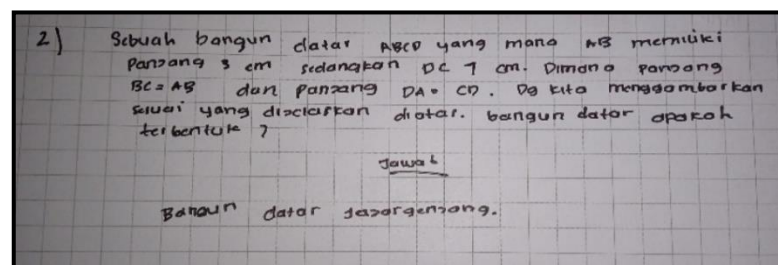 2) Sebuah bangun datar ABCD yang mana AB memiliki
panjang 3 cm sedangkan DC 7 cm. Dimana panjang
BC = AB dan panjang DA = CD. Dg kita menggambarkan
sesuai yang dijelaskan diatas. bangun datar apakah
terbentuk ?
Jawab
Bangun datar jajargenjang.